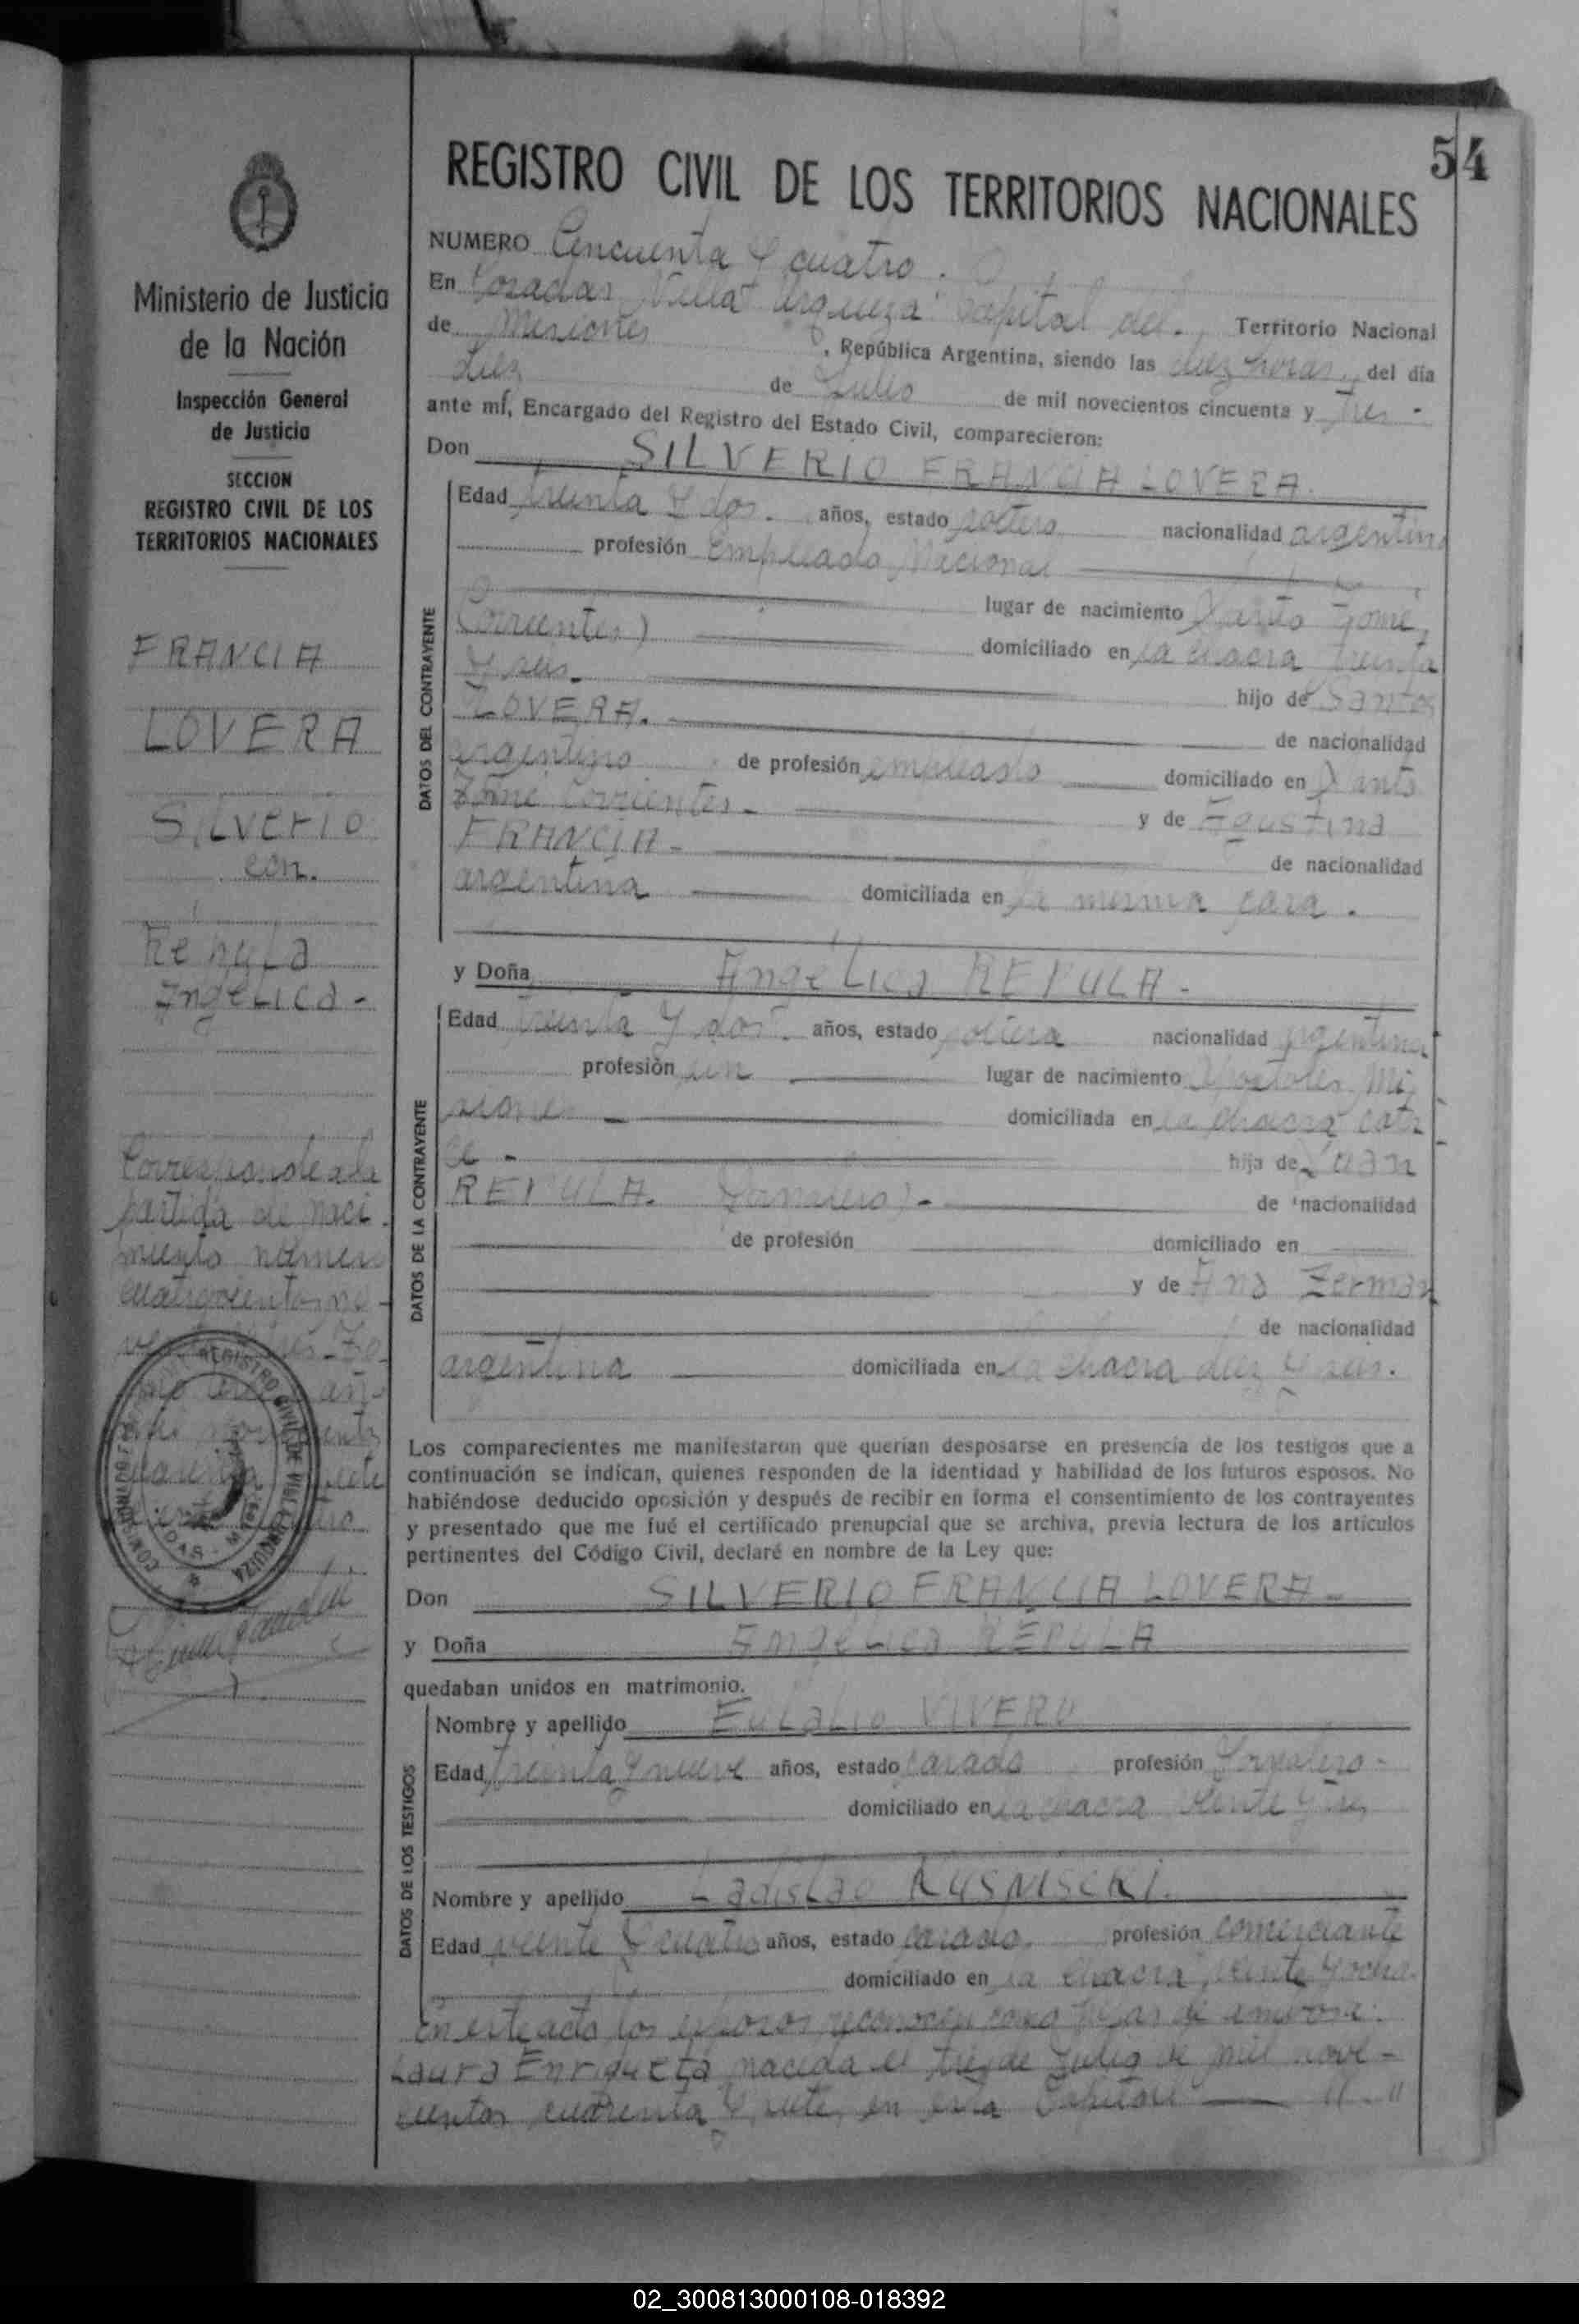 54
REGISTRO CIVIL DE LOS TERRITORIOS NACIONALES
Ministerio de Justicia
de la Nación
Inspección General
de Justicia
SECCION
REGISTRO CIVIL DE LOS
TERRITORIOS NACIONALES
FRANCIA
LOVERA
Silverio
con.
Repula
Angélica -
Corresponde a la
partida de naci
miento número
NUMERO Cincuenta y cuatro.
En Posadas, Villa Urquiza Capital del. Territorio Nacional
de Misiones, República Argentina, siendo las diez horas, del día
diez de Julio de mil novecientos cincuenta y tres -
ante mí, Encargado del Registro del Estado Civil, comparecieron:
Don SILVERIO FRANCIA LOVERA.
DATOS DEL CONTRAYENTE
Edad treinta y dos. años, estado soltero nacionalidad argentino
profesión Empleado Nacional
lugar de nacimiento Santo Tomé,
Corrientes) domiciliado en la chacra treinta
y seis. hijo de Santos
LOVERA. de nacionalidad
argentino de profesión empleado domiciliado en Santo
Tomé Corrientes - y de Agustina
FRANCIA - de nacionalidad
argentina domiciliada en la misma casa.
y Doña Angélica REPULA -
DATOS DE LA CONTRAYENTE
Edad treinta y dos. años, estado soltera nacionalidad argentina
profesión sin lugar de nacimiento Apostoles, Mi
siones - domiciliada en la chacra cator
ce - hija de Juan
REPULA. de nacionalidad
de profesión domiciliado en
y de Ana Zerman
de nacionalidad
argentina domiciliada en la chacra diez y seis.
Los comparecientes me manifestaron que querían desposarse en presencia de los testigos que a
continuación se indican, quienes responden de la identidad y habilidad de los futuros esposos. No
habiéndose deducido oposición y después de recibir en forma el consentimiento de los contrayentes
y presentado que me fué el certificado prenupcial que se archiva, previa lectura de los artículos
pertinentes del Código Civil, declaré en nombre de la Ley que:
Don SILVERIO FRANCIA LOVERA -
y Doña Angélica REPULA
quedaban unidos en matrimonio.
DATOS DE LOS TESTIGOS
Nombre y apellido Eulalio VIVERO
Edad treinta y nueve años, estado casado profesión Jornalero -
domiciliado en la chacra veinte y tres
Nombre y apellido Ladislao KUSNISCKI.
Edad veinte y cuatro años, estado casado. profesión comerciante
domiciliado en la chacra veinte y ocho.
En este acto los esposos reconocen como hijas de ambos a:
Laura Enriqueta nacida el tres de Julio de mil nove -
cientos cuarenta y siete, en esta Capital
02_300813000108-018392